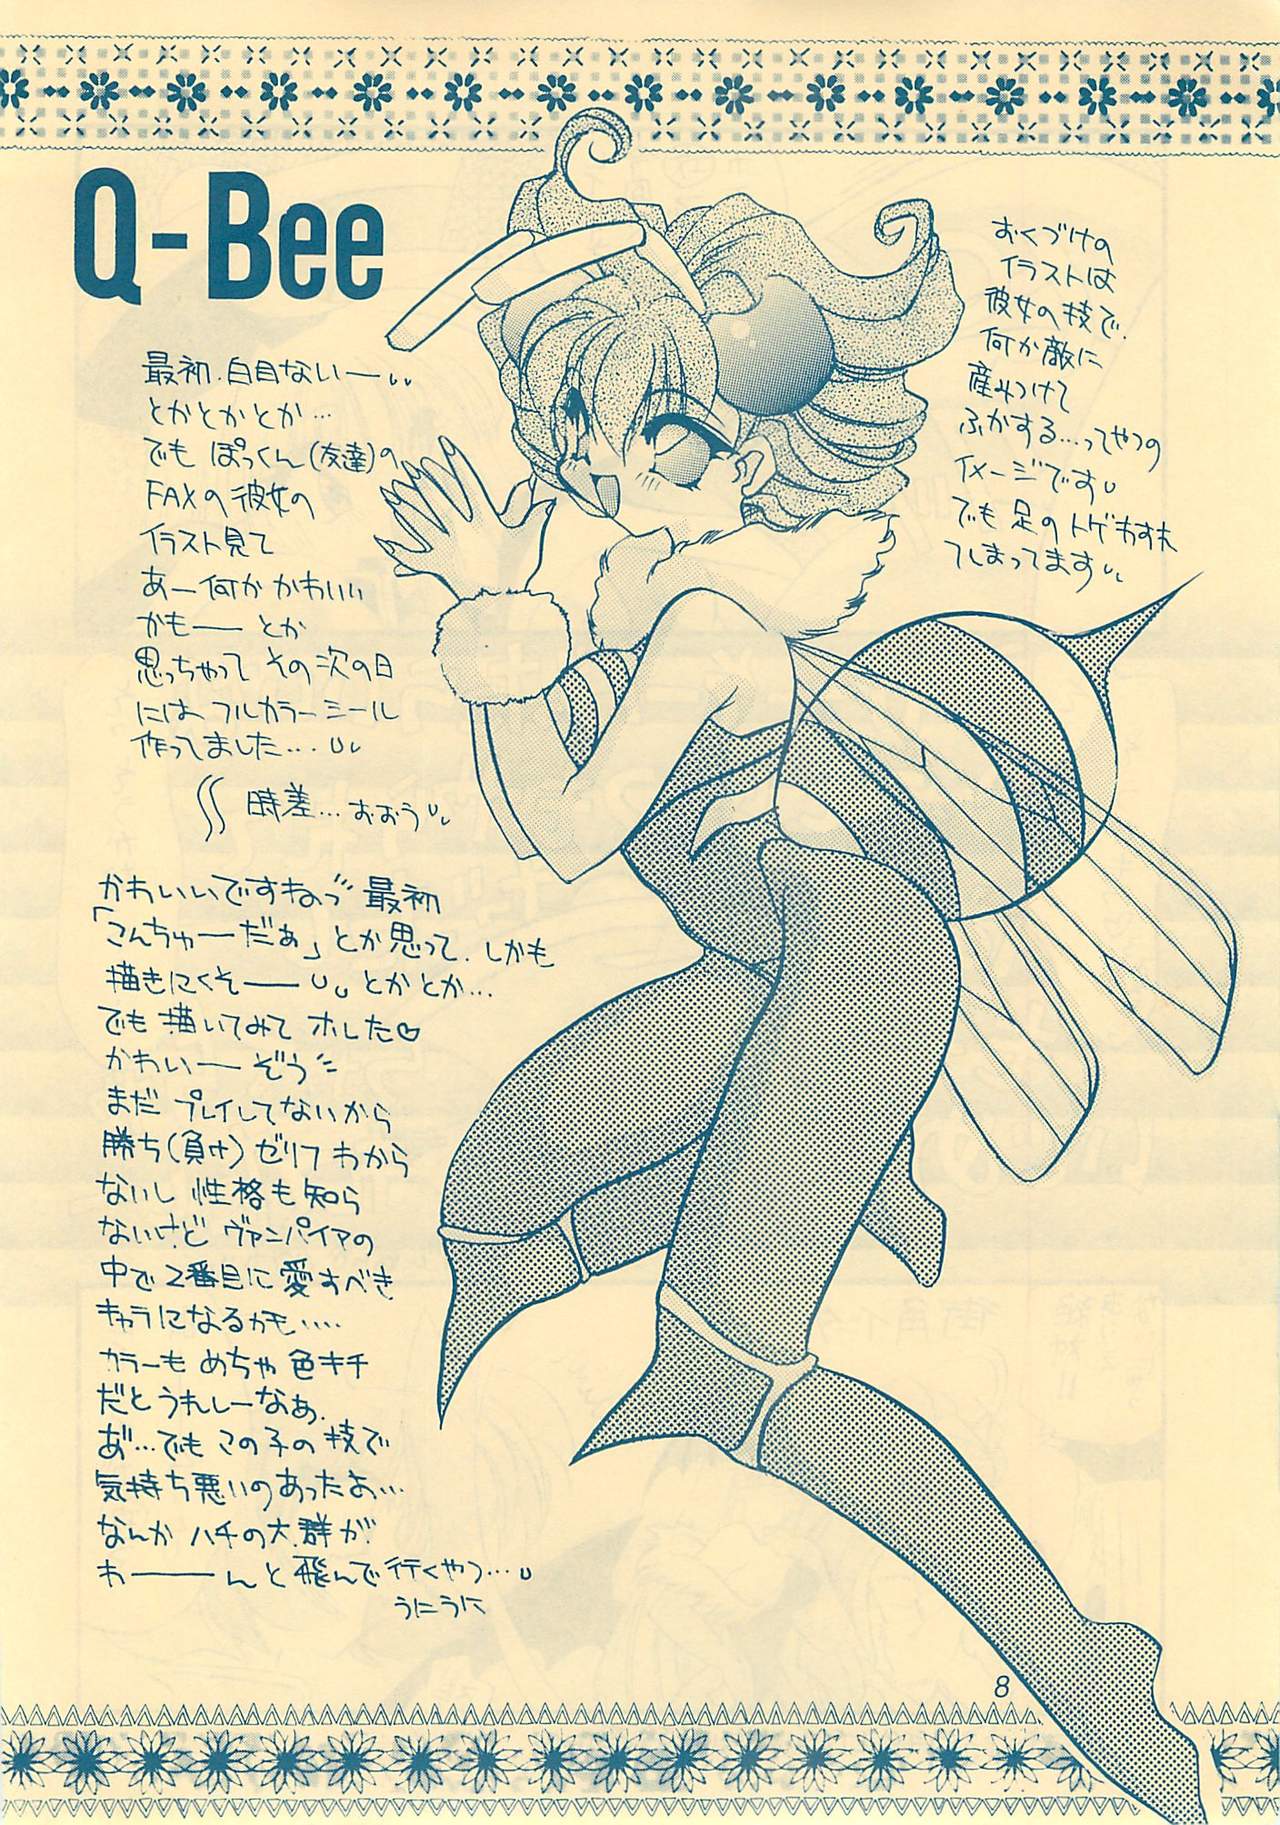 Q-Bee
最初、白目ないー
とかとかとか…
でも ぽっくん(友達)の
FAXの彼女の
イラスト見て
あー何か かわいい
かもー とか
思っちゃって その次の日
には、フルカラーシール
作ってました…
時差…おおう
かわいいですねっ 最初
「こんちゅーだぁ」とか思って、しかも
描きにくそーー とかとか…
でも 描いてみて ホレた♡
かわいーー ぞう
まだ プレイしてないから
勝ち(負け)ゼリフ わから
ないし 性格も知ら
ないけど ヴァンパイアの
中で2番目に愛すべき
キャラになるかも‥‥
カラーも めちゃ 色キチ
だと うれしーなぁ、
あ゛…でも この子の 技で
気持ち悪いのあったよ…
なんか ハチの大群が
わーーーんと 飛んで行くやつ…
うにうに
おくづけの
イラストは
彼女の技で、
何か敵に
産みつけて
ふかする…ってやつの
イメージです
でも 足の トゲ わすれ
てしまってます
8